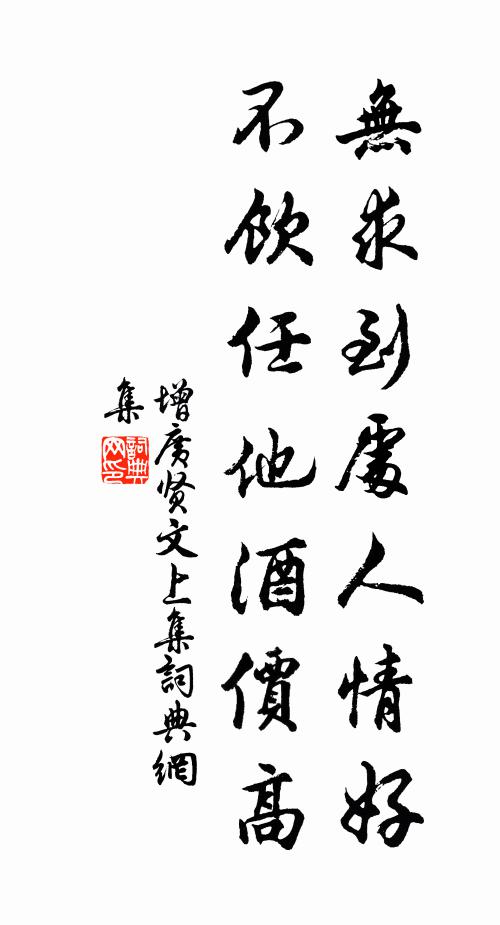 無求到處人情好
不飲任他酒價高
增廣贤文上集詞典網
集
詞典网印